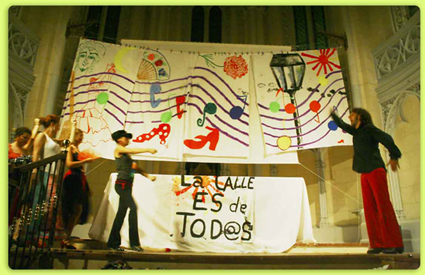 La CALLE
ES de
TOD@S